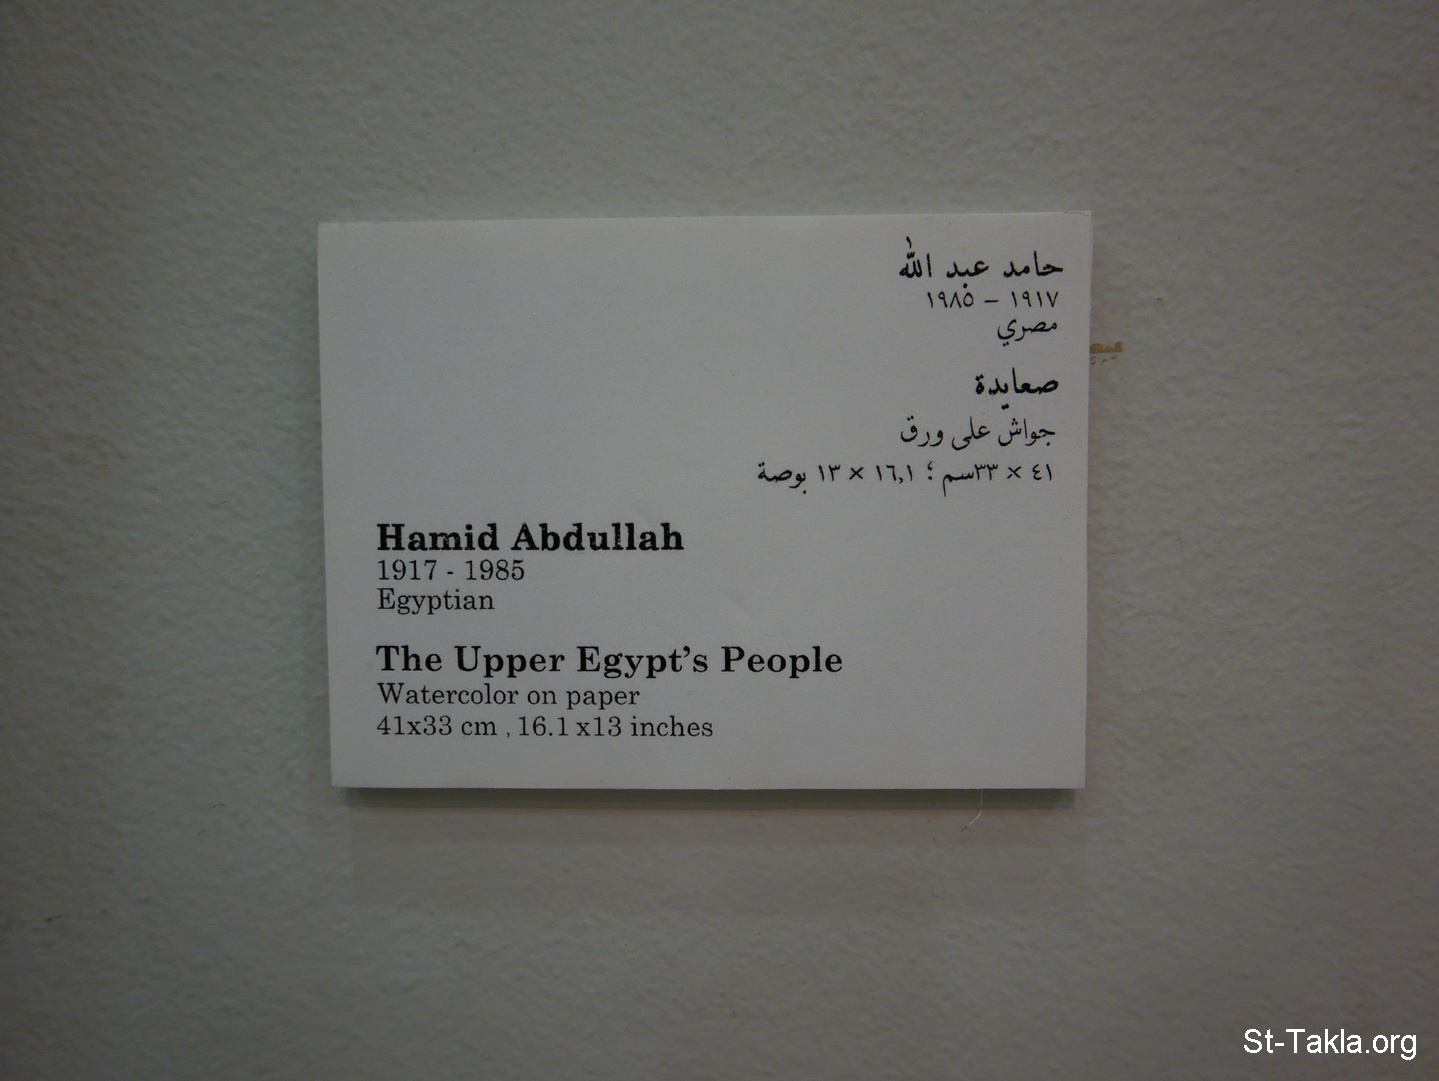 حامد عبد الله
١٩١٧ – ١٩٨٥
مصري
صعايدة
جواش على ورق
٤١ × ٣٣سم ؛ ١٦,١ × ١٣ بوصة
Hamid Abdullah
1917 - 1985
Egyptian
The Upper Egypt's People
Watercolor on paper
41x33 cm , 16.1 x13 inches
St-Takla.org